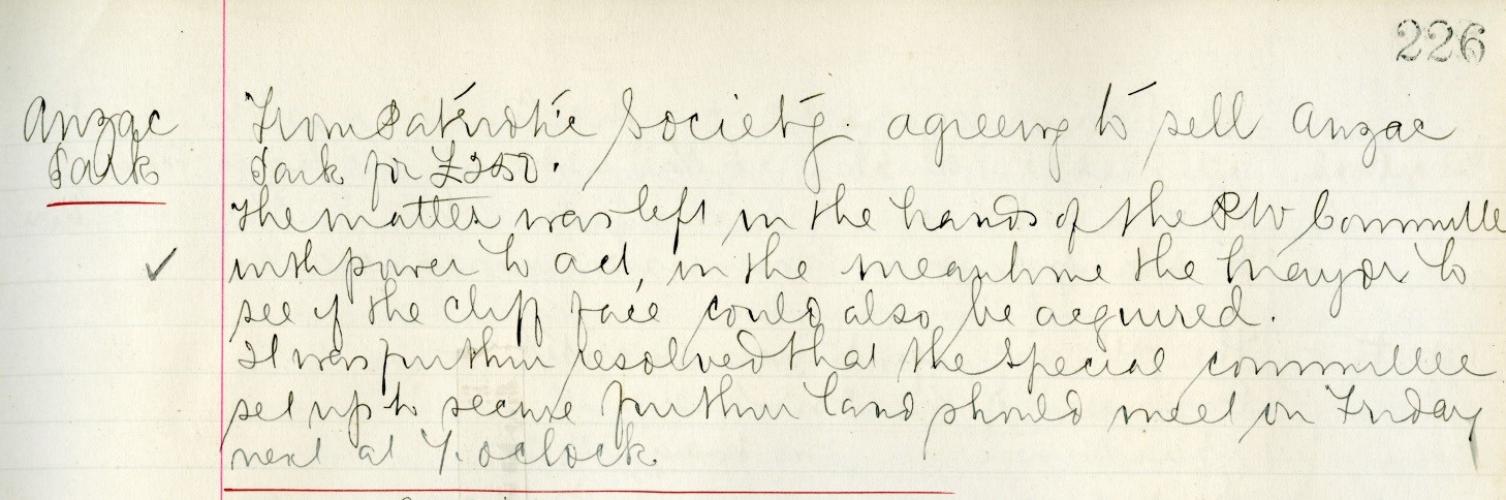 226
Anzac
Park
From Patriotic Society. agreeing to sell Anzac
Park for £250.
The matter was left in the hands of the PW Committee
with power to act, in the meantime the Mayor to
see if the cliff face could also be acquired.
It was further resolved that the special committee
set up to secure further land should meet on Friday
next at 7. oclock